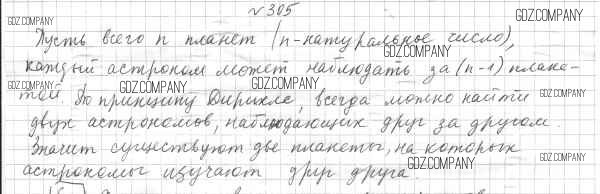 № 305
GDZ.COMPANY GDZ.COMPANY
Пусть всего n планет (n-натуральное число),
GDZ.COMPANY
каждый астроном может наблюдать за (n-1) плане-
GDZ.COMPANY GDZ.COMPANY GDZ.COMPANY GDZ.COMPANY
той. По принципу Дирихле, всегда можно найти
двух астрономов, наблюдающих друг за другом.
GDZ.COMPANY GDZ.COMPANY
Значит существуют две планеты, на которых
GDZ.COMPANY GDZ.COMPANY
астрономы изучают друг друга.